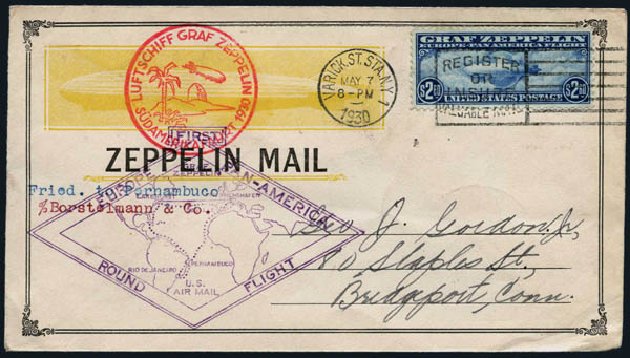 LUFTSCHIFF GRAF ZEPPELIN
SÜDAMERIKAFAHRT 1930
VARICK ST. STA. N.Y. 1
MAY 7
8-PM
1930
GRAF ZEPPELIN
EUROPE-PAN AMERICA FLIGHT
$2.60 $2.60
UNITED STATES POSTAGE
REGISTER
OR
INSURE
VALUABLE MAIL
FIRST
ZEPPELIN MAIL
Fried. to Pernambuco
℅Borstelmann & Co.
EUROPE PAN-AMERICA
ZEPPELIN
RIO DE JANEIRO
PERNAMBUCO
ROUND FLIGHT
U.S.
AIR MAIL
J. Gordon, Jr,
80 Staples St,
Bridgeport, Conn.